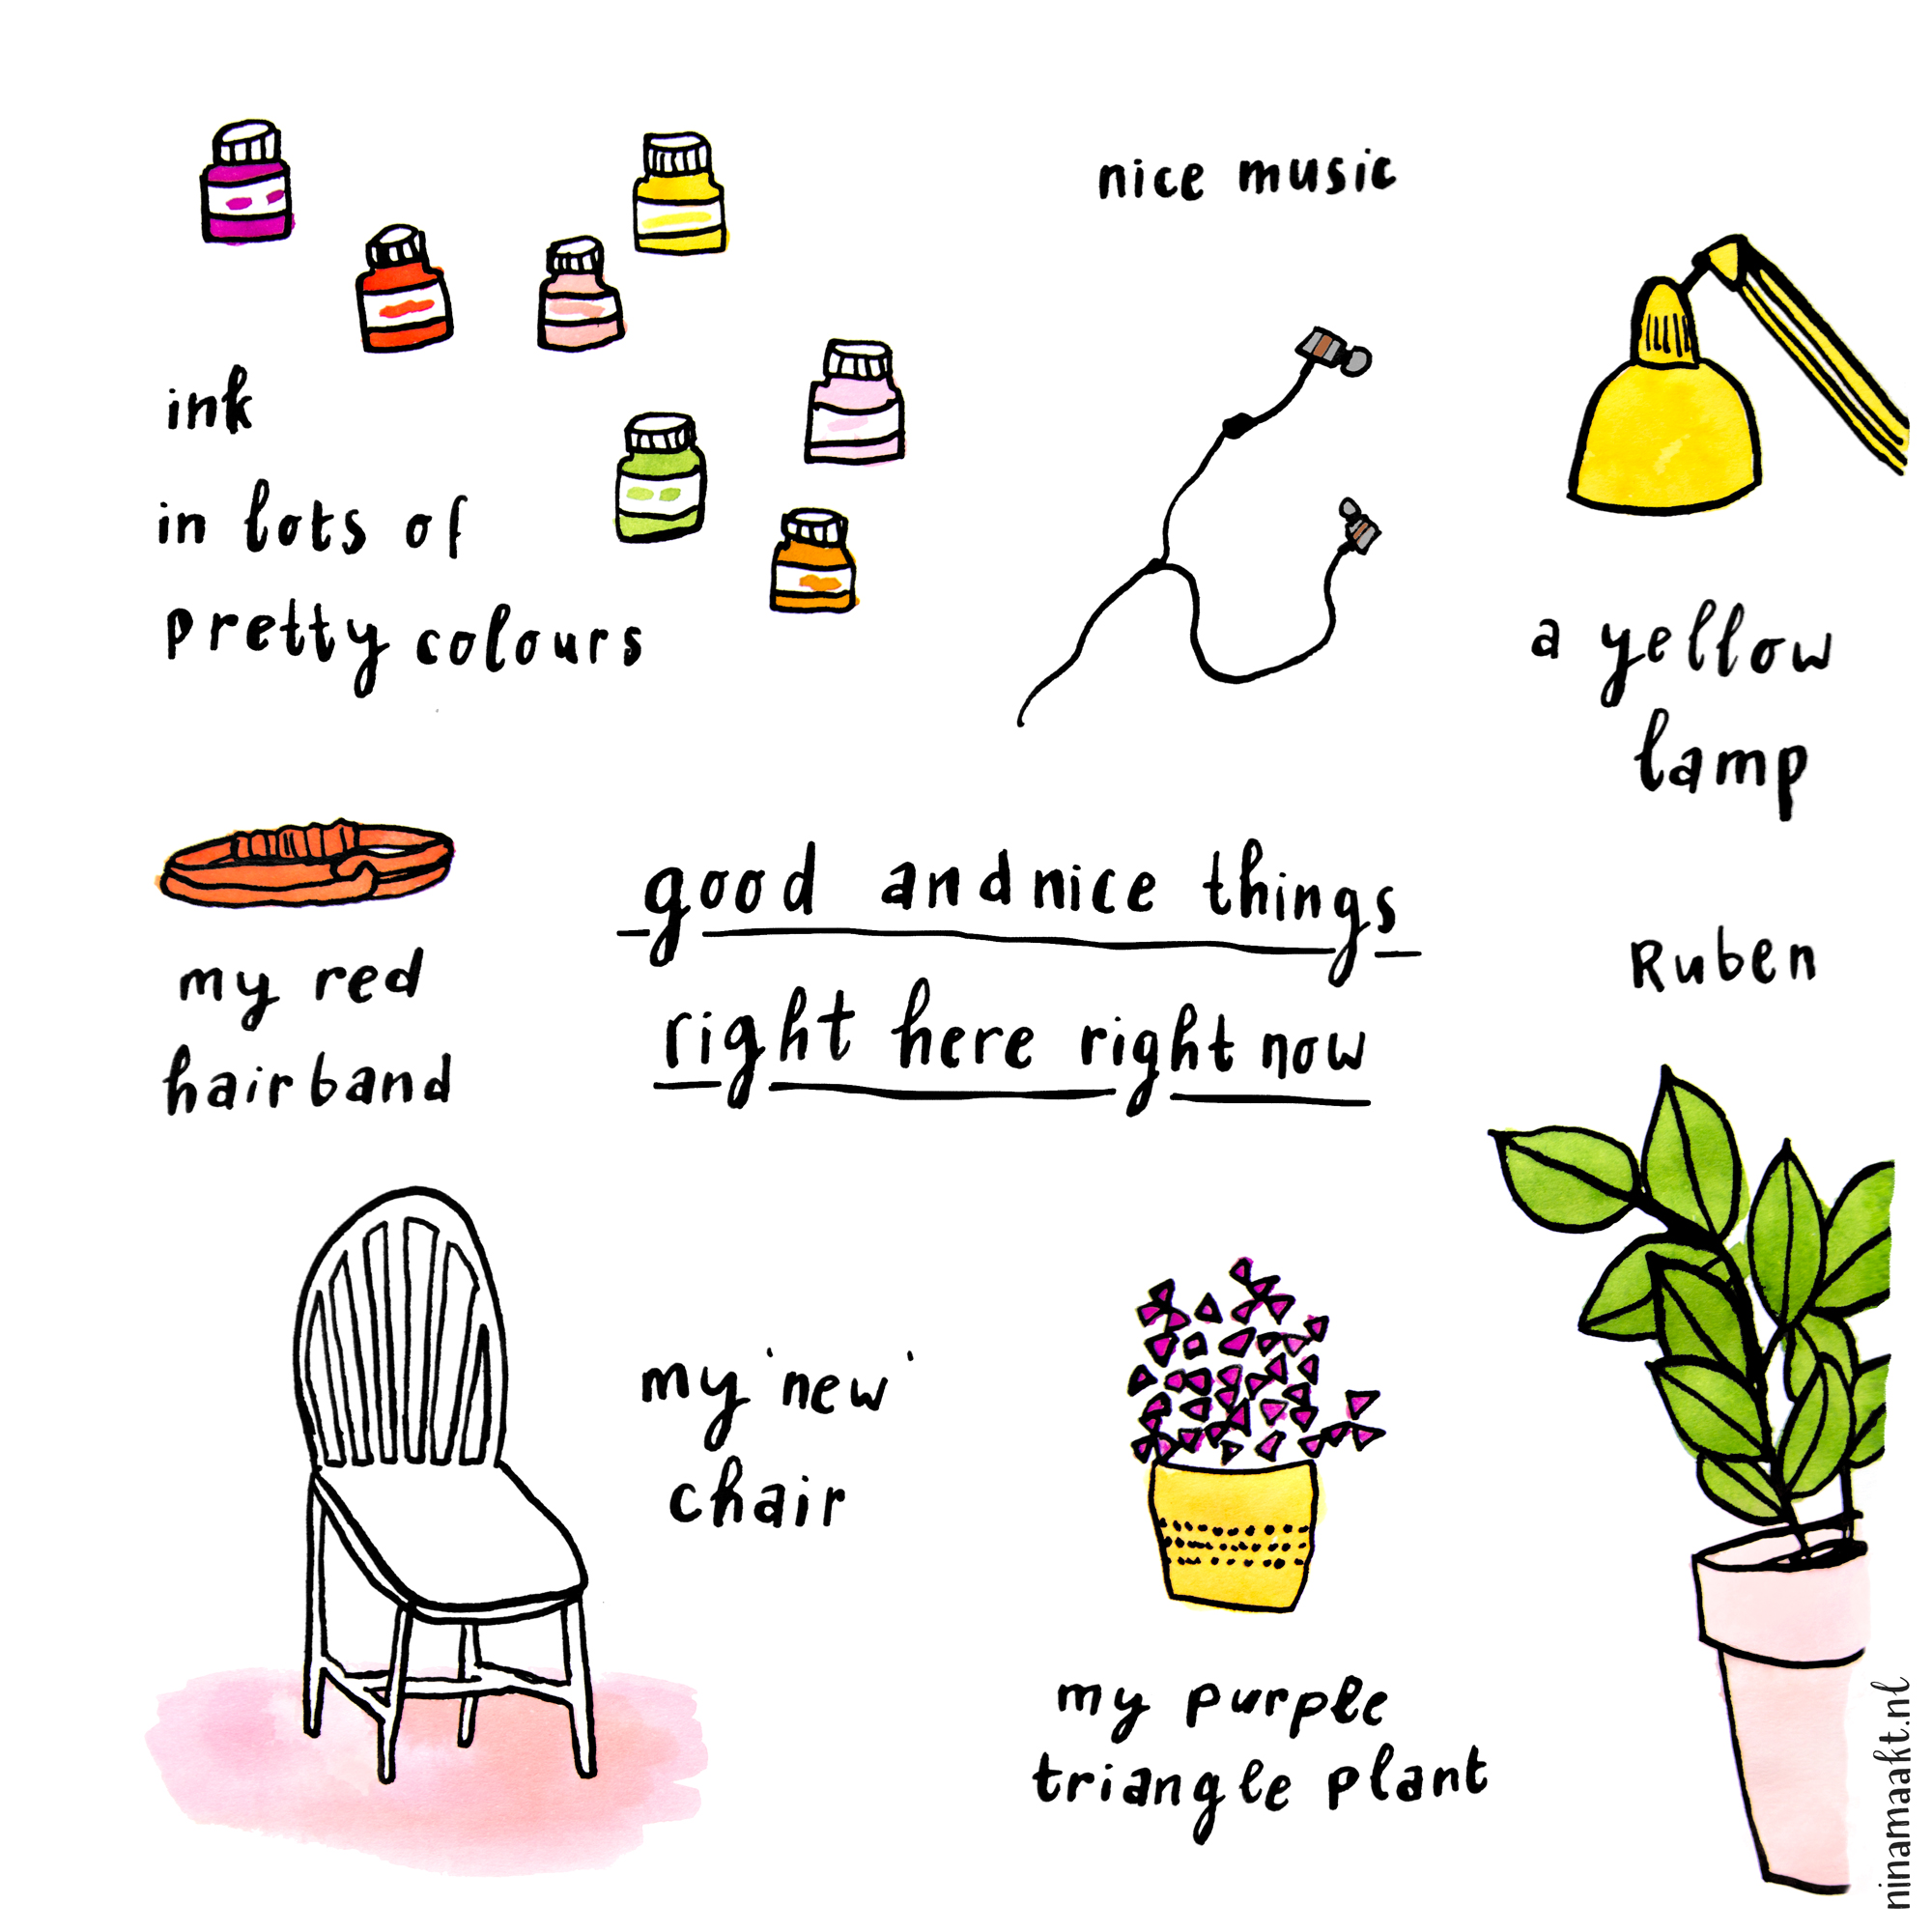 nice music
ink
in lots of
pretty colours
a yellow
lamp
good and nice things
right here right now
my red
hairband
Ruben
my 'new'
chair
my purple
triangle plant
ninamaakt.nl